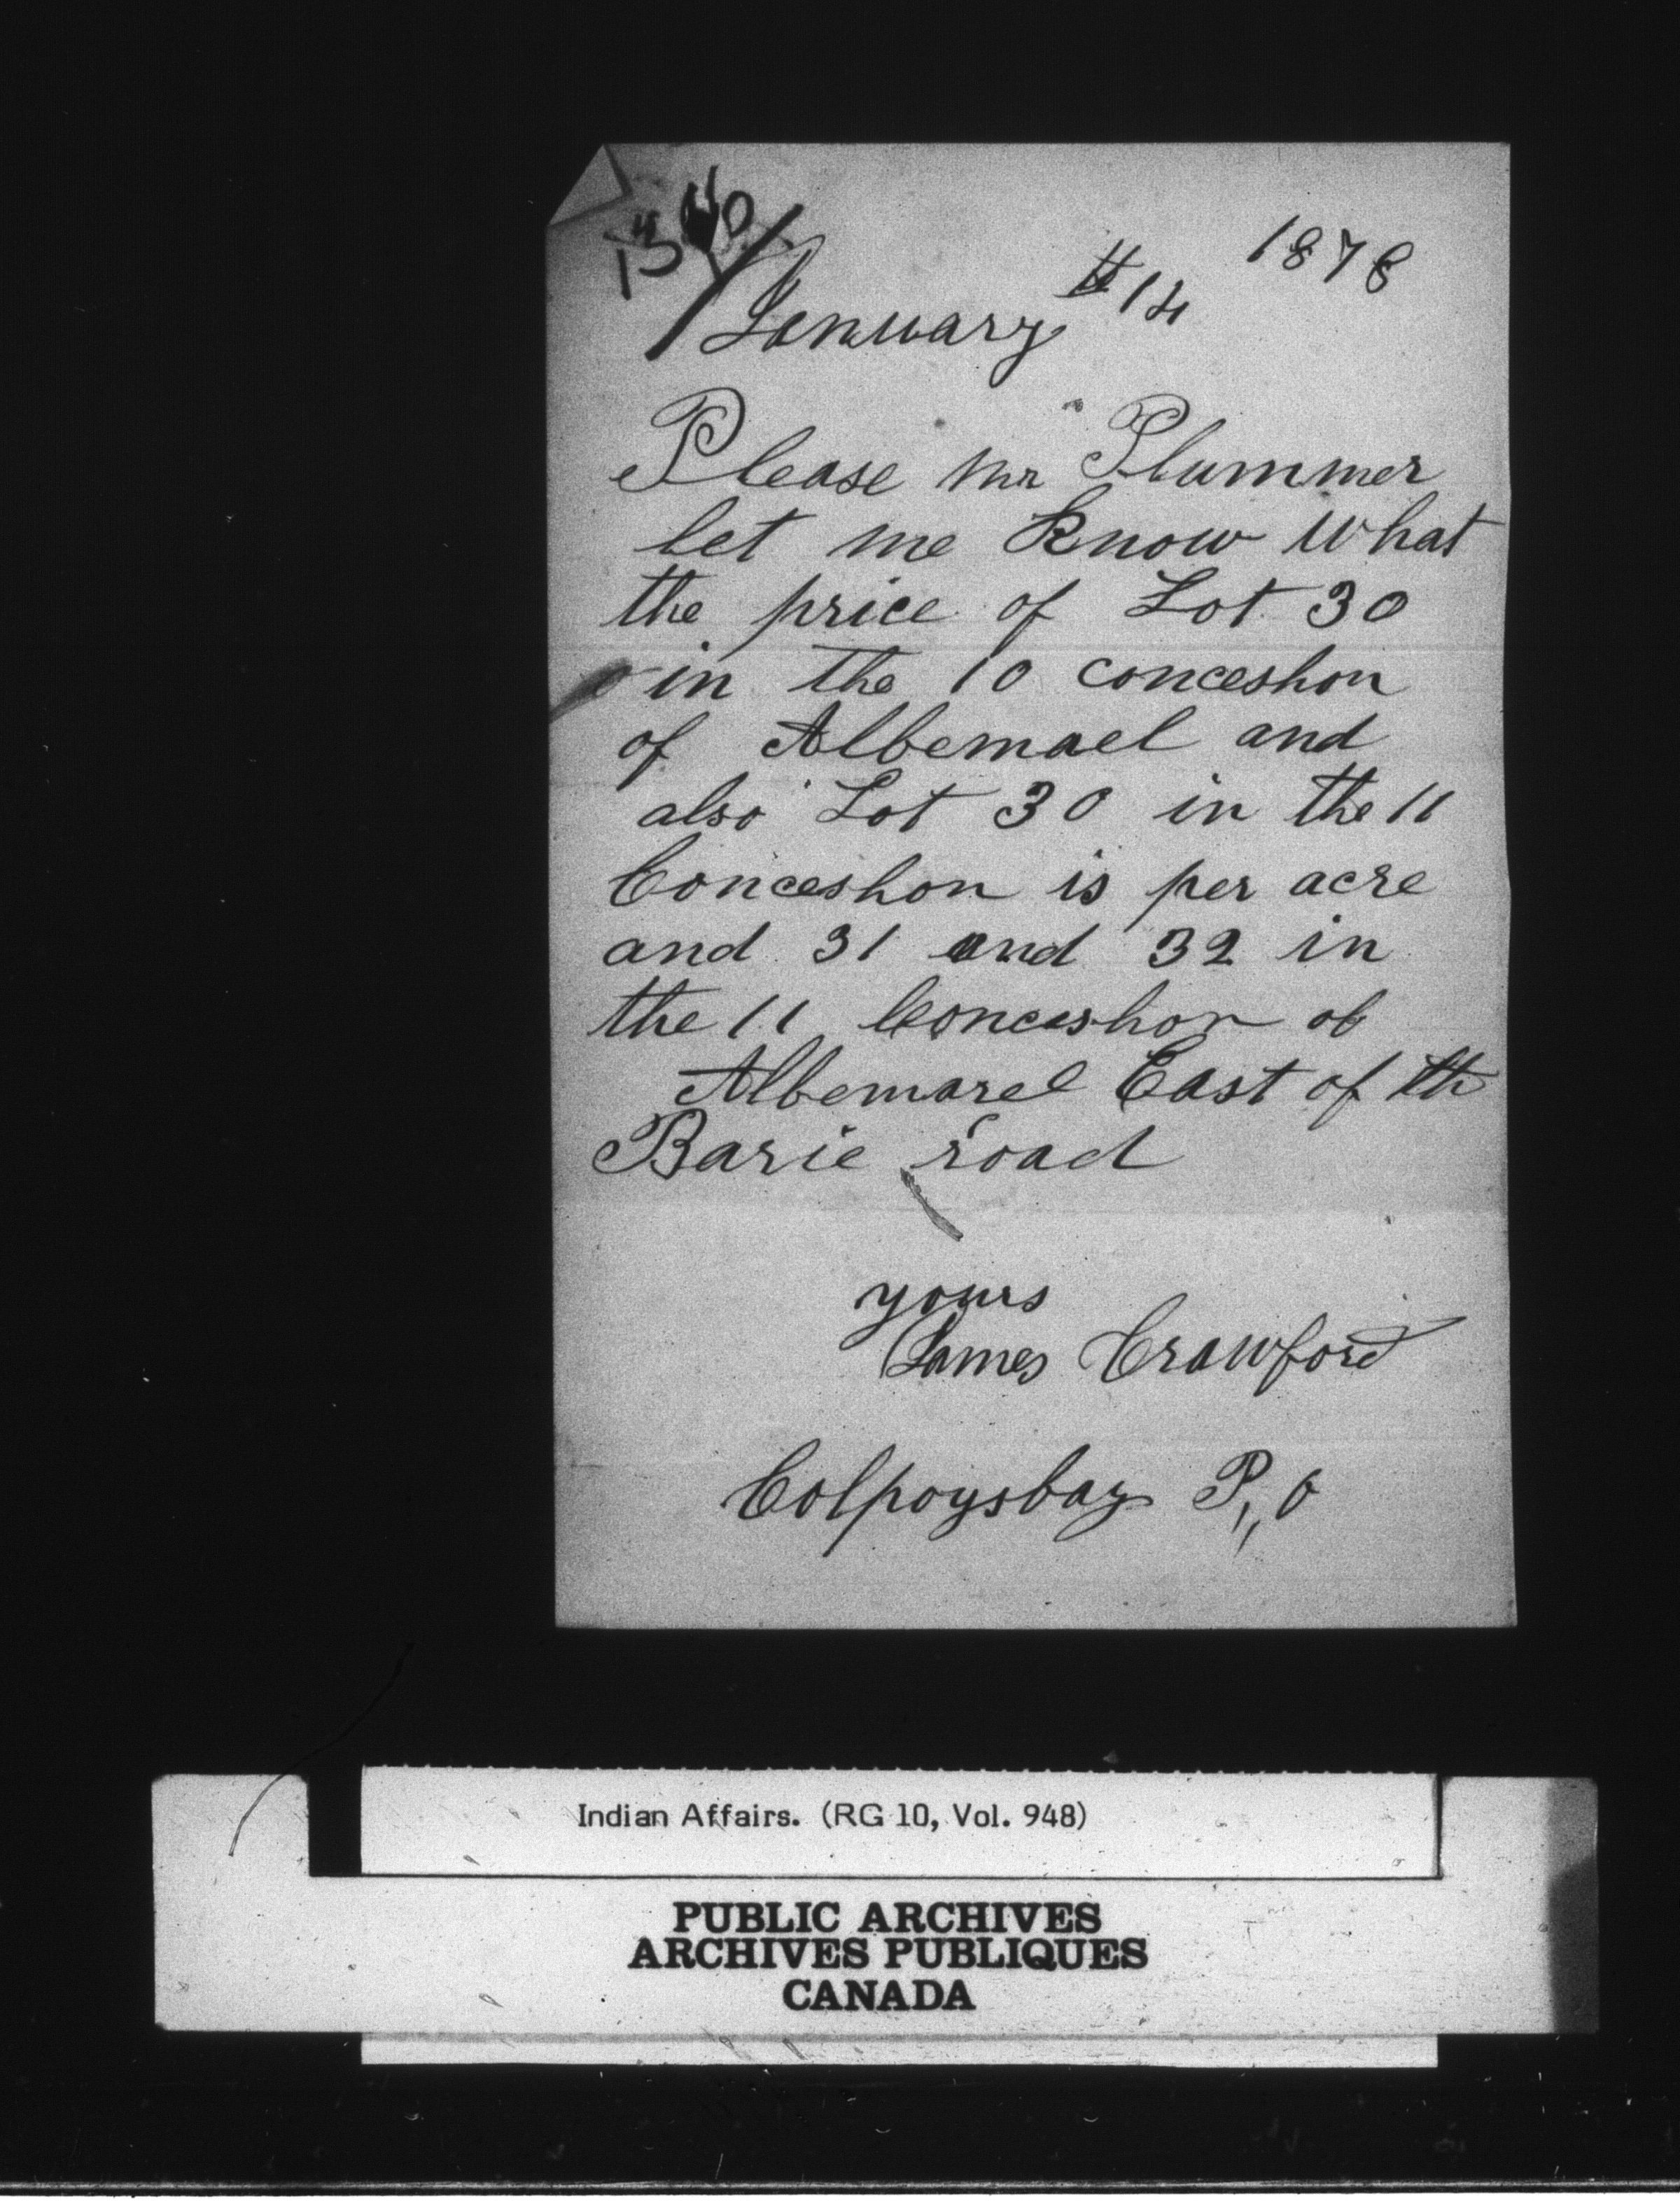 January 14 1878
Please Mr Plummer
let me know what
the price of Lot 30
in the 10 conceshon
of Albemael and
also Lot 30 in the 11
Conceshon is per acre
and 31 and 32 in
the 11 Conceshon of
Albemarel East of th
Barie road
yours
James Crawford
Colpoysbay P,, O
Indian Affairs. (RG 10, Vol. 948)
PUBLIC ARCHIVES
ARCHIVES PUBLIQUES
CANADA